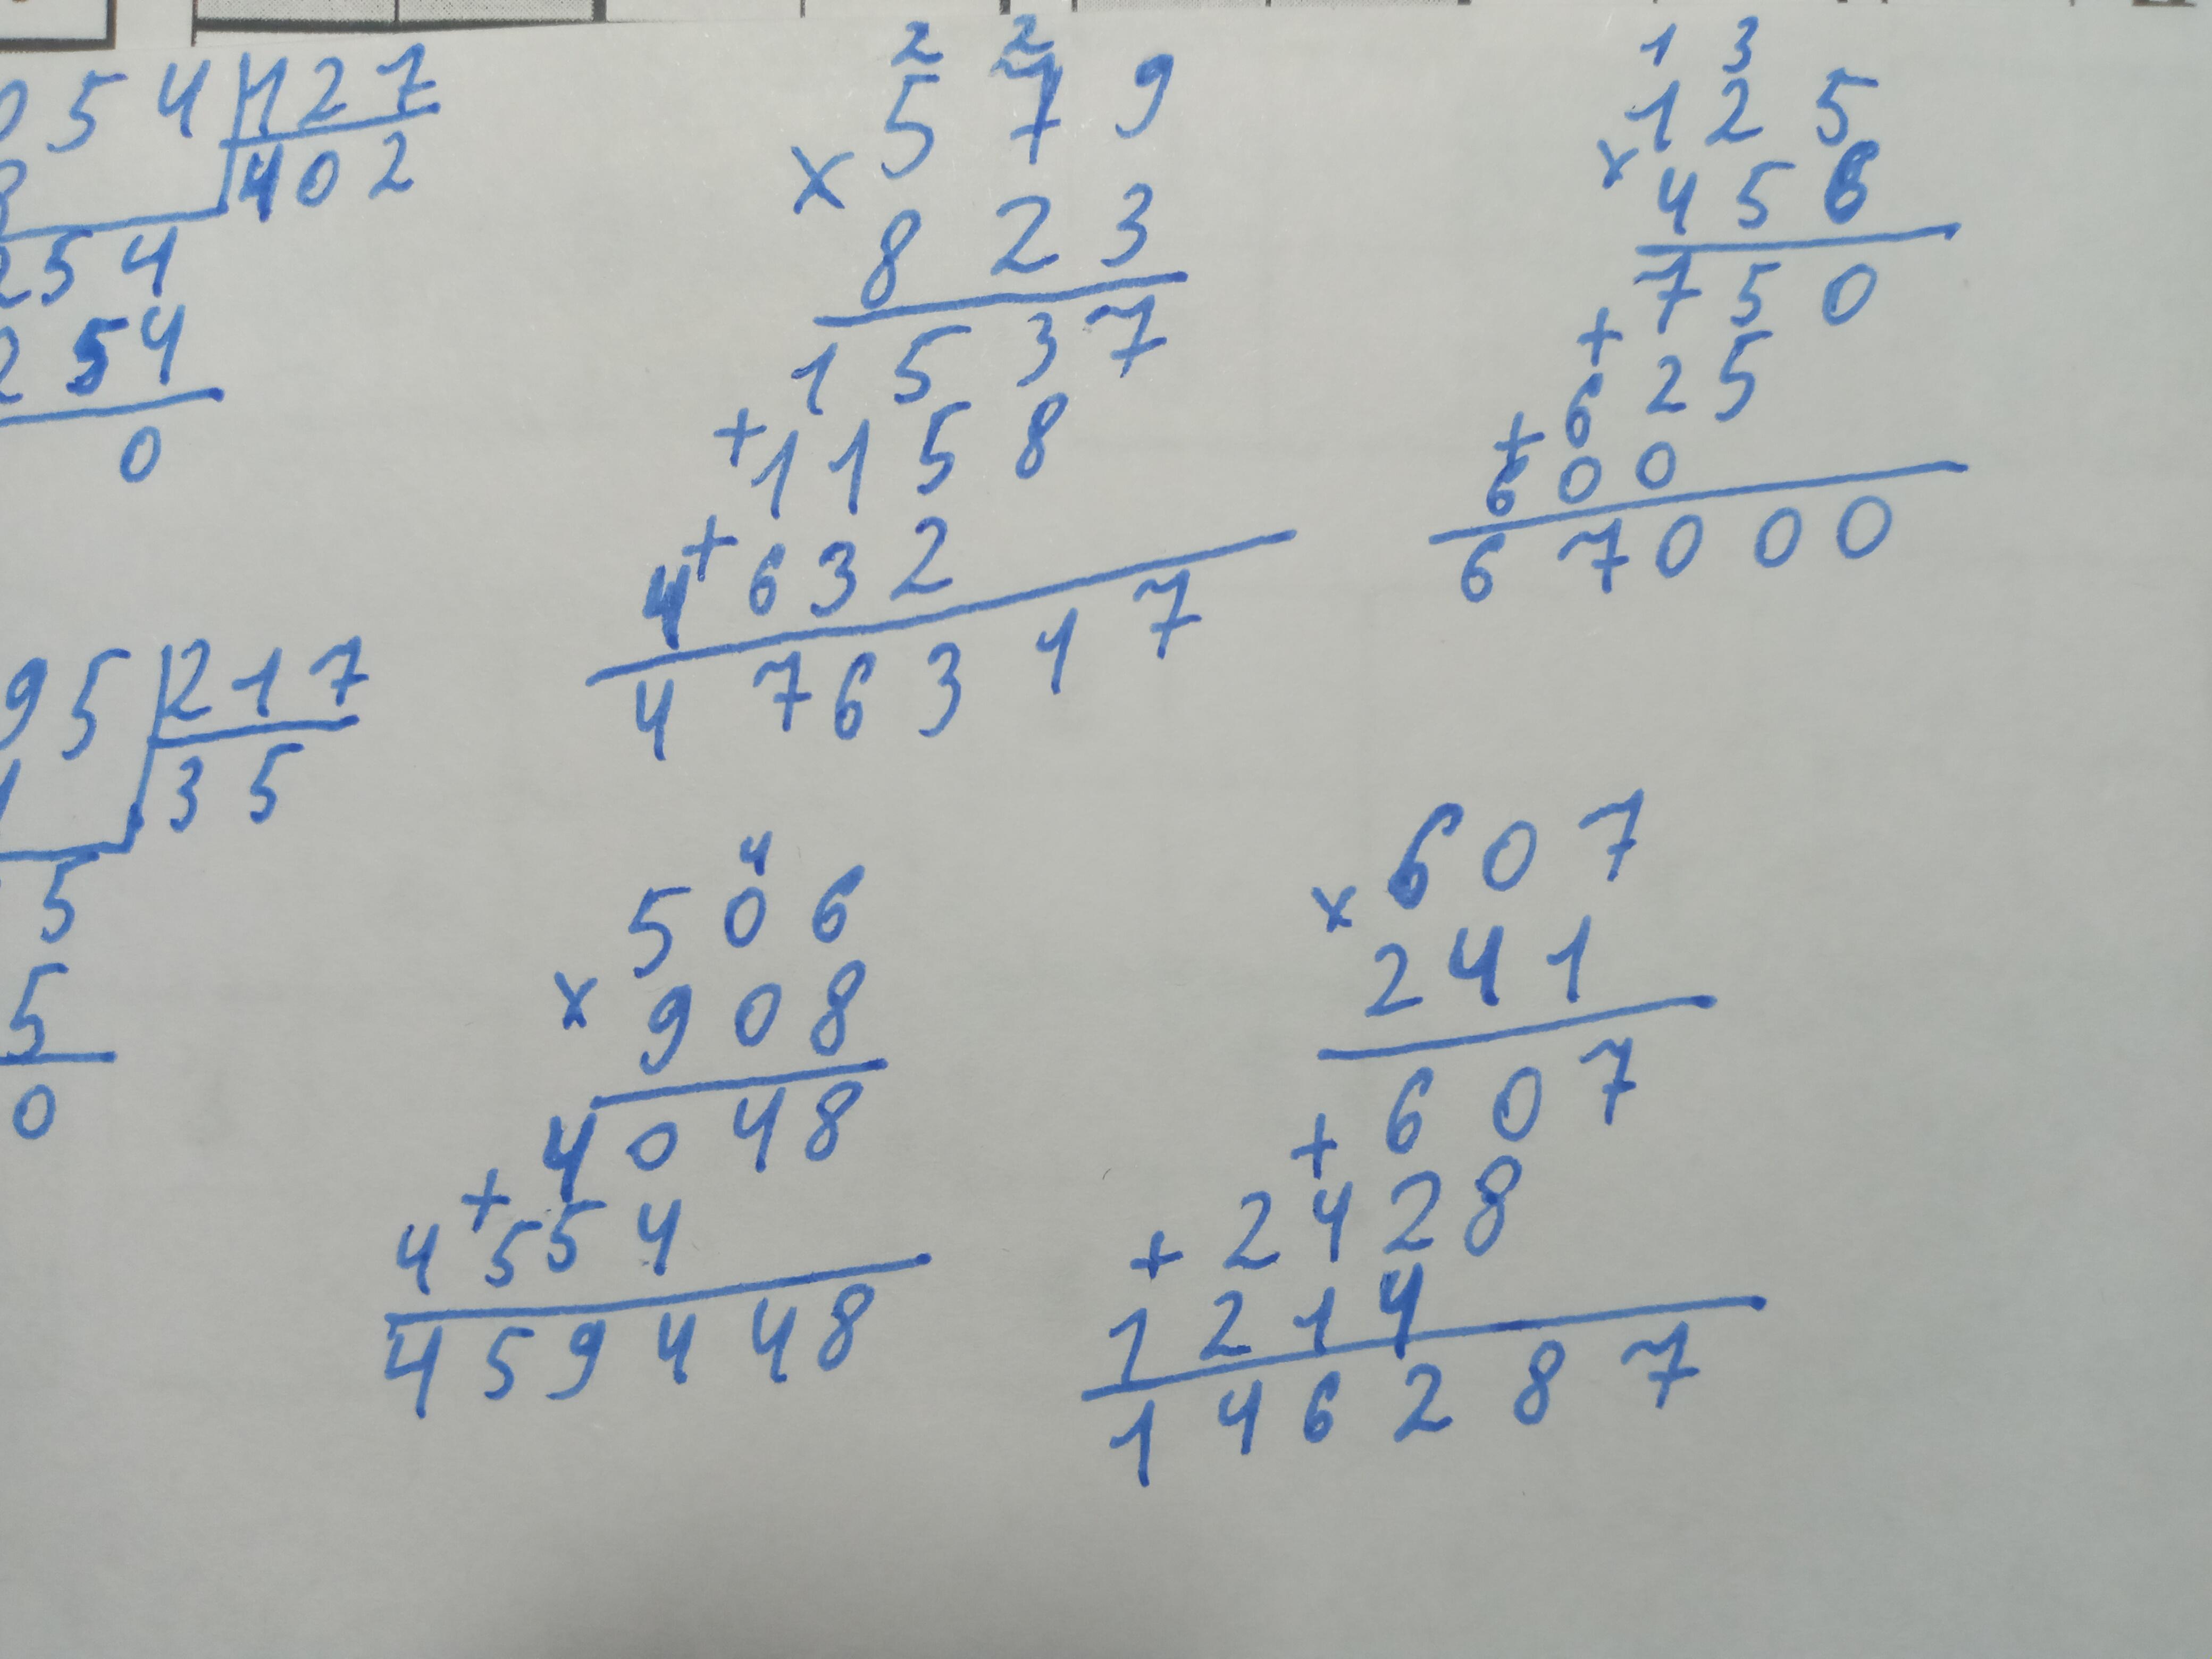 054 | 127
8 402
254
254
0
95 | 217
1 35
5
5
0
2 2
579
× 823
1537
+ 1158
+ 4632
476317
1 3
125
× 456
750
+ 625
+ 600
67000
4
506
× 908
4048
+ 4554
459448
607
× 241
607
+ 2428
+ 1214
146287